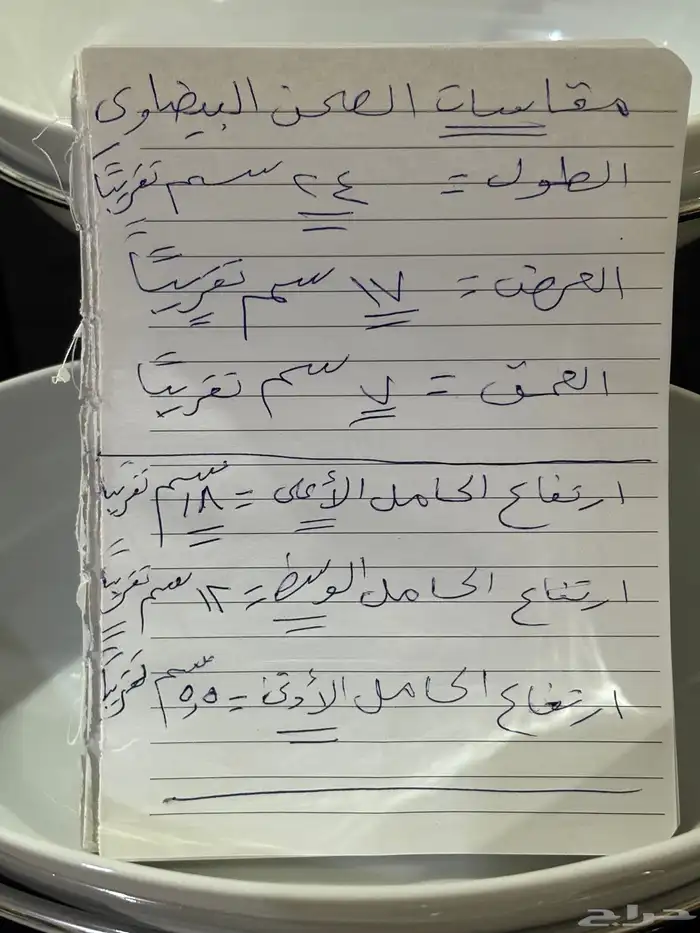 مقاسات الصحن البيضاوى
الطول = ٢٤ سم تقريبًا
العرض = ١٧ سم تقريبًا
العمق = ٧ سم تقريبًا
ارتفاع الحامل الأعلى = ١٨ سم تقريبًا
ارتفاع الحامل الوسط = ١٢ سم تقريبًا
ارتفاع الحامل الأدنى = ٥,٥ سم تقريبًا
حراج